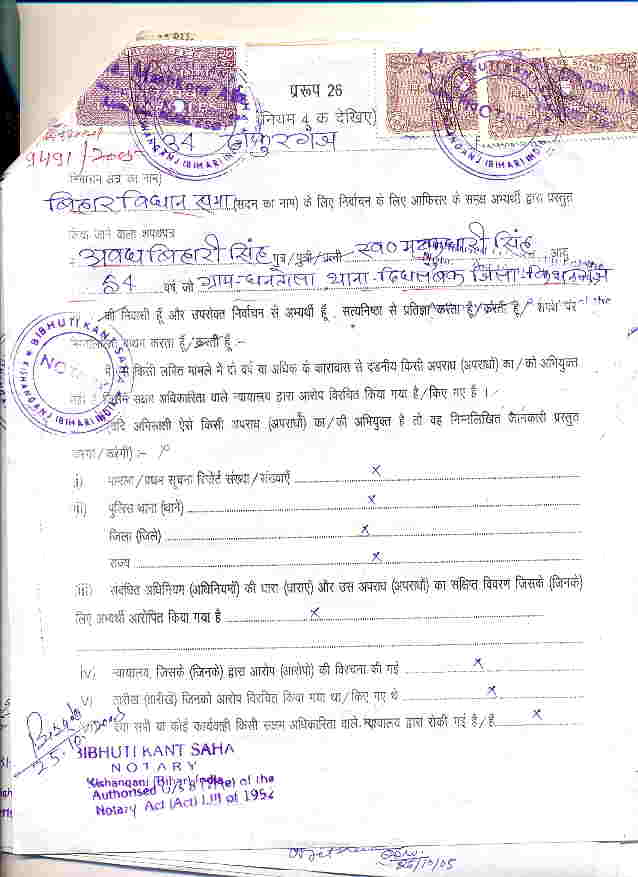 प्ररूप 26
(नियम 4 क देखिए)
34 ठाकुरगंज
9491/2005
निर्वाचन क्षेत्र का नाम)
बिहार विधान सभा (सदन का नाम) के लिए निर्वाचन के लिए आफिसर के समक्ष अभ्यर्थी द्वारा प्रस्तुत
किया जाने वाला शपथपत्र
अवध बिहारी सिंह पुत्र/पुत्री/पत्नी स्व० सिंह आयु
54 वर्ष, जो ग्राम-धनतोला थाना-दिघलबैंक जिला-किशनगंज
का निवासी हूँ और उपरोक्त निर्वाचन से अभ्यर्थी हूँ, सत्यनिष्ठा से प्रतिज्ञा करता हूँ/करती हूँ/शपथ पर
निम्नलिखित कथन करता हूँ/करती हूँ :-
मैं किसी लंबित मामले में दो वर्ष या अधिक के कारावास से दंडनीय किसी अपराध (अपराधों) का/को अभियुक्त
नहीं हूँ जिसमें सक्षम अधिकारिता वाले न्यायालय द्वारा आरोप विरचित किया गया है/किए गए हैं ।
यदि अभिसाक्षी ऐसे किसी अपराध (अपराधों) का/की अभियुक्त है तो वह निम्नलिखित जानकारी प्रस्तुत
करेगा/करेगी) :-
i) मामला/प्रथम सूचना रिपोर्ट संख्या/संख्याएँ x
ii) पुलिस थाना (थाने) x
जिला (जिले) x
राज्य x
iii) संबंधित अधिनियम (अधिनियमों) की धारा (धाराएँ) और उस अपराध (अपराधों) का संक्षिप्त विवरण जिसके (जिनके)
लिए अभ्यर्थी आरोपित किया गया है x
iv) न्यायालय, जिसके (जिनके) द्वारा आरोप (आरोपों) की विरचना की गई x
v) तारीख (तारीखें) जिनको आरोप विरचित किया गया था/किए गए थे x
vi) क्या सभी या कोई कार्यवाही किसी सक्षम अधिकारिता वाले न्यायालय द्वारा रोकी गई है/हैं x
BIBHUTI KANT SAHA
NOTARY
KISHANGANJ (BIHAR) INDIA
25.10.2005
BIBHUTI KANT SAHA
NOTARY
Kishanganj (Bihar) India
Authorised U/S 8 of the
Notary Act (Act) LIII of 1952
25/10/05